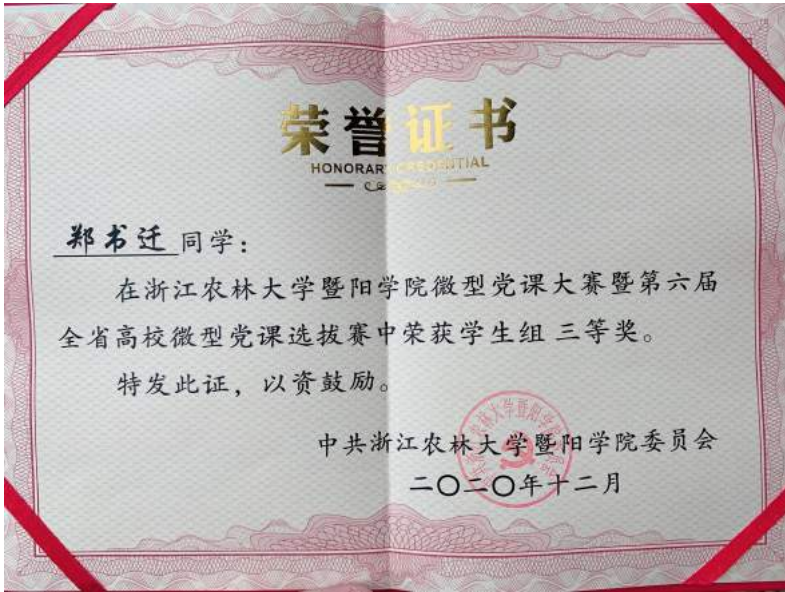 荣誉证书
HONORARY CREDENTIAL
郑书迁同学：
在浙江农林大学暨阳学院微型党课大赛暨第六届
全省高校微型党课选拔赛中荣获学生组 三等奖。
特发此证，以资鼓励。
中共浙江农林大学暨阳学院委员会
二〇二〇年十二月